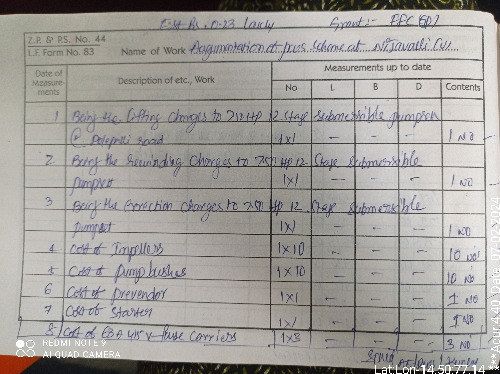 Est Rs. 0-23 Lakhs Grant:- PPC GP1
Z.P. & P.S. No. 44
L.F. Form No. 83 Name of Work Augmentation of pws scheme at Nijavalli (v)
Date of Measure-ments Description of etc., Work Measurements up to date
No L B D Contents
1 Being the lifting charges to 7.50 HP 12 stage submersible pumpset
@ road 1x1 — — — 1 No
2 Being the Rewinding charges to 7.50 HP 12 Stage Submersible
pumpset 1x1 — — — 1 No
3 Being the Erection charges to 7.50 HP 12 Stage Submersible
pumpset 1x1 — — — 1 No
4 Cost of Impellors 1x10 — — — 10 No
5 Cost of Pump bushes 1x10 — — — 10 No
6 Cost of Prevendor 1x1 — — — 1 No
7 Cost of Starter 1x1 — — — 1 No
8 Cost of fuse carriers 1x3 — — — 3 No
REDMI NOTE 9
AI QUAD CAMERA
Lat Lon-14.50.77.14